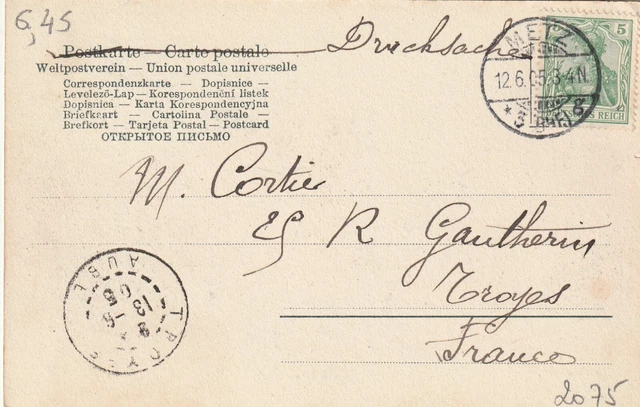 6,45
Postkarte — Carte postale
Drucksache
Weltpostverein — Union postale universelle
Correspondenzkarte — Dopisnice —
Levelező-Lap — Korespondenční listek
Dopisnica — Karta Korespondencyjna
Briefkaart — Cartolina Postale —
Brefkort — Tarjeta Postal — Postcard
ОТКРЫТОЕ ПИСЬМО
METZ
12.6.05.3-4N
5
REICH
M. Cortier
R Gautherin
Troyes
France
TROYES
AUBE
2075